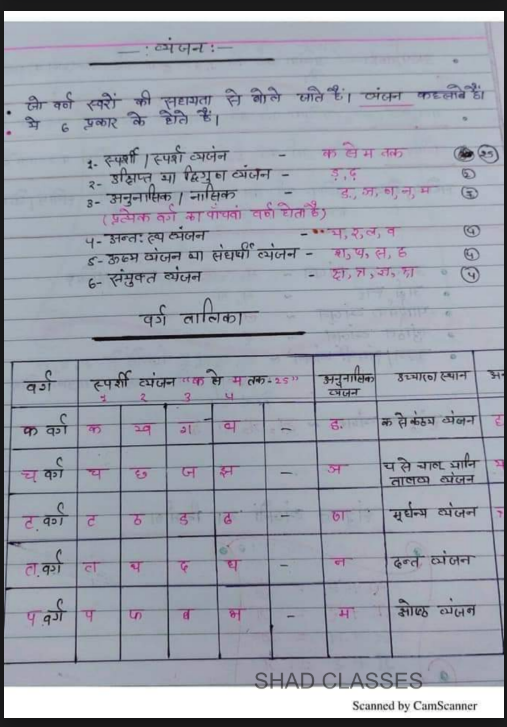 —: व्यंजन :—
जो वर्ण स्वरों की सहायता से बोले जाते हैं। व्यंजन कहलाते हैं।
ये 6 प्रकार के होते हैं।
1- स्पर्शी / स्पर्श व्यंजन - क से म तक 25
२- उत्क्षिप्त या द्विगुण व्यंजन - ड़, ढ़ 2
3- अनुनासिक / नासिक - ङ, ञ, ण, न, म 5
(प्रत्येक वर्ग का पांचवां वर्ण होता है)
4- अन्तःस्थ व्यंजन - य, र, ल, व 4
5- ऊष्म व्यंजन या संघर्षी व्यंजन - श, ष, स, ह 4
6- संयुक्त व्यंजन - क्ष, त्र, ज्ञ, श्र 4
वर्ग तालिका
वर्ग स्पर्शी व्यंजन "क से म तक-25" अनुनासिक व्यंजन उच्चारण स्थान
१ २ 3 ४
क वर्ग क ख ग घ - ङ क से कंठय व्यंजन
च वर्ग च छ ज झ - ञ च से तालव्य व्यंजन
ट वर्ग ट ठ ड ढ - ण मूर्धन्य व्यंजन
त वर्ग त थ द ध - न दन्त व्यंजन
प वर्ग प फ ब भ - म ओष्ठ व्यंजन
SHAD CLASSES
Scanned by CamScanner